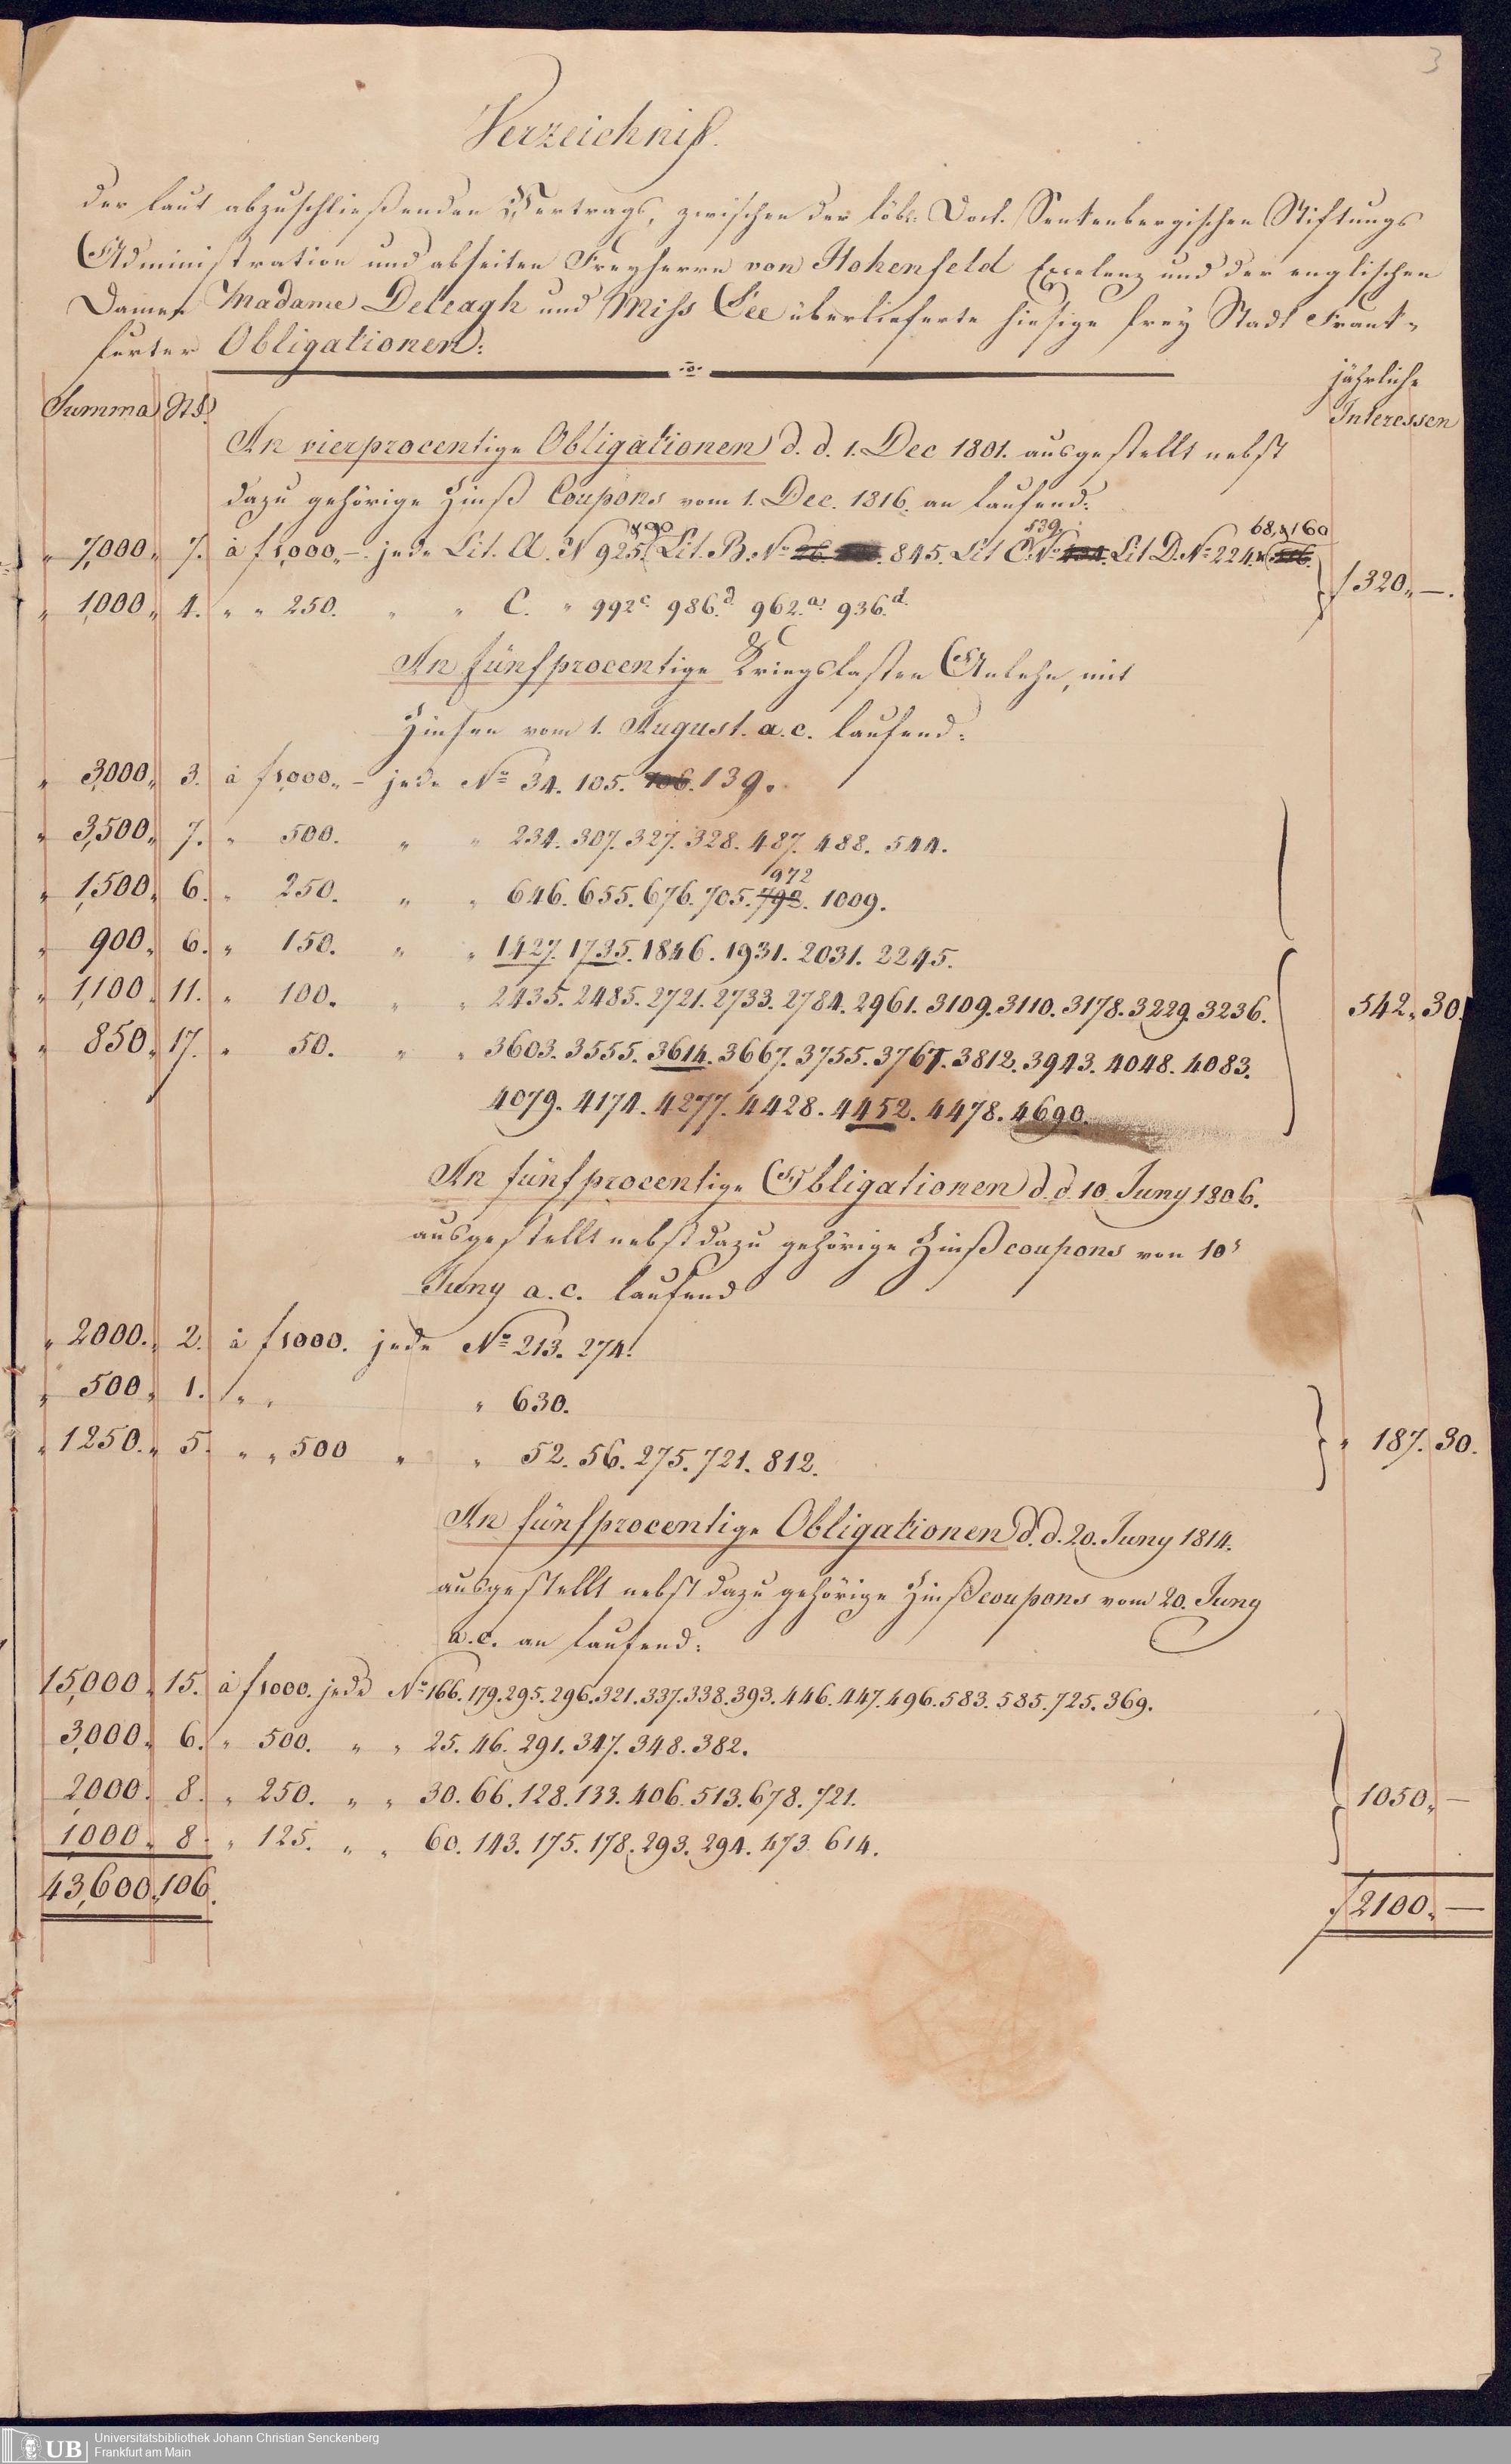 3
Verzeichniß.
der laut abzuschließenden Vertrags, zwischen der löbl. Doct. Senkenbergischen Stiftungs
Administration und abseiten Freyherrn von Hohenfeld Excelenz und der englischen
Damen Madame Deleagh und Miss Lee überlieferte hiesige frey Stadt Frank-
furter Obligationen:
jährliche
Summa Stk. Interessen
An vierprocentige Obligationen d. d. 1. Dec 1801. ausgestellt nebst
dazu gehörige Zinß Coupons vom 1. Dec. 1816. an laufend:
539. 68. & 160
" 7,000 " 7. à f 1,000 „ – jede Lit. A. N 925. Lit. B. No 845. Lit C. No Lit D. No 224.
" 1,000 " 4. " " 250. " " C. " 992c. 986.d 962.a 936.d f 320 „ —.
An fünfprocentige Kriegslasten Anlehn, mit
Zinsen vom 1. August. a. c. laufend:
" 3,000 " 3. à f 1,000 „ – jede No 34. 105. 106. 139.
" 3,500 " 7. " 500. " " 234. 307. 327. 328. 487. 488. 544.
972
" 1,500 " 6. " 250. " " 646. 655. 676. 705. 798. 1009.
" 900 " 6. " 150. " " 1427. 1735. 1846. 1931. 2031. 2245.
" 1,100 " 11. " 100. " " 2435. 2485. 2721. 2733. 2784. 2961. 3109. 3110. 3178. 3229. 3236. 542 „ 30.
" 850 " 17. " 50. " " 3603. 3555. 3614. 3667. 3755. 3767. 3812. 3943. 4048. 4083.
4079. 4174. 4277. 4428. 4452. 4478. 4690.
An fünfprocentige Obligationen d. d. 10. Juny 1806.
ausgestellt nebst dazu gehörige Zinßcoupons von 10t
Juny a. c. laufend
" 2000. " 2. à f 1000. jede No 213. 274.
" 500 " 1. " " " 630.
" 1250. " 5. " " 500 " " 52. 56. 275. 721. 812. " 187. 30.
An fünfprocentige Obligationen d. d. 20. Juny 1814.
ausgestellt nebst dazu gehörige Zinßcoupons vom 20. Juny
a. c. an laufend:
15,000 " 15. à f 1000. jede No 166. 179. 295. 296. 321. 337. 338. 393. 446. 447. 496. 583. 585. 725. 369.
3,000 " 6. " 500. " " 25. 46. 291. 347. 348. 382.
2,000. 8. " 250. " " 30. 66. 128. 133. 406. 513. 678. 721. 1050 „ —
1,000 " 8. " 125. " " 60. 143. 175. 178. 293. 294. 473. 614.
43,600 " 106. f 2100 „ —
UB Universitätsbibliothek Johann Christian Senckenberg
Frankfurt am Main